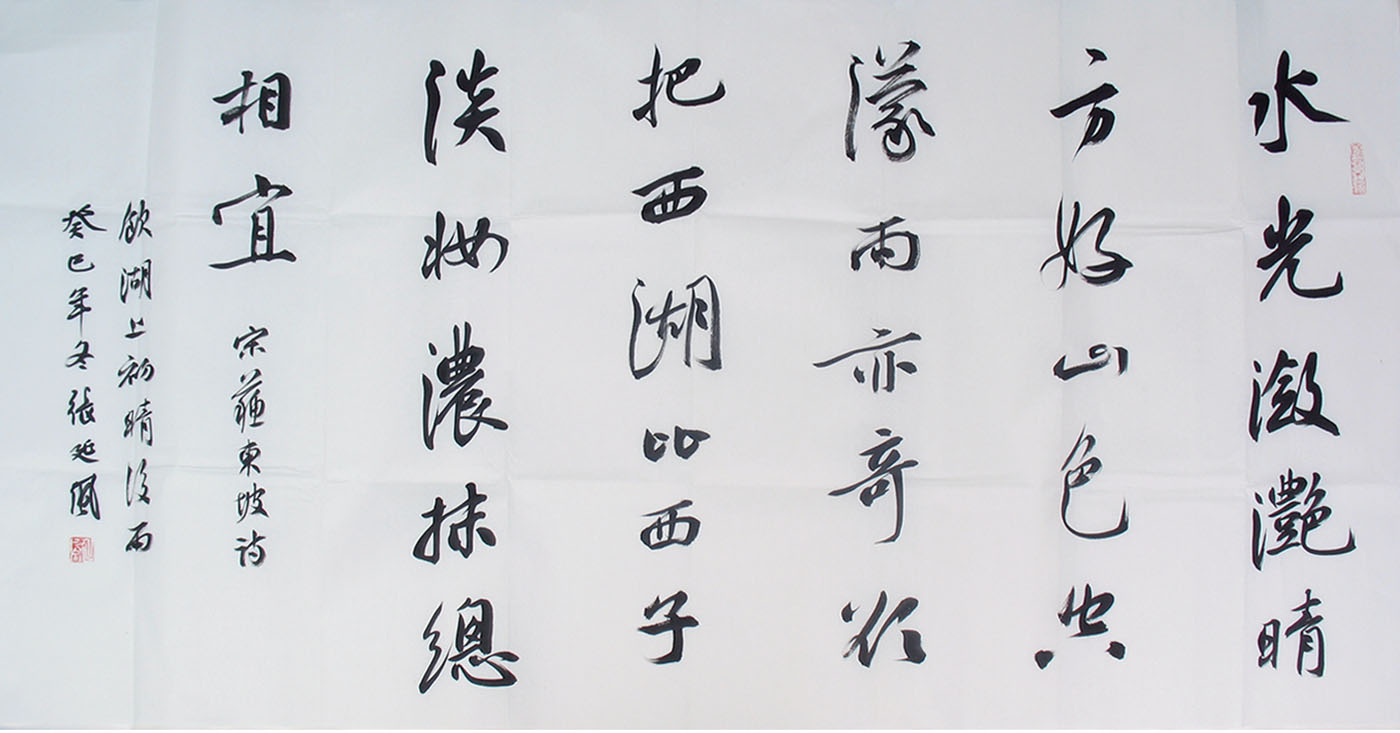 水光瀲灩晴
方好山色空
濛雨亦奇欲
把西湖比西子
淡妝濃抹總
相宜 宋蘇東坡詩
飲湖上初晴後雨
癸巳年冬張延風